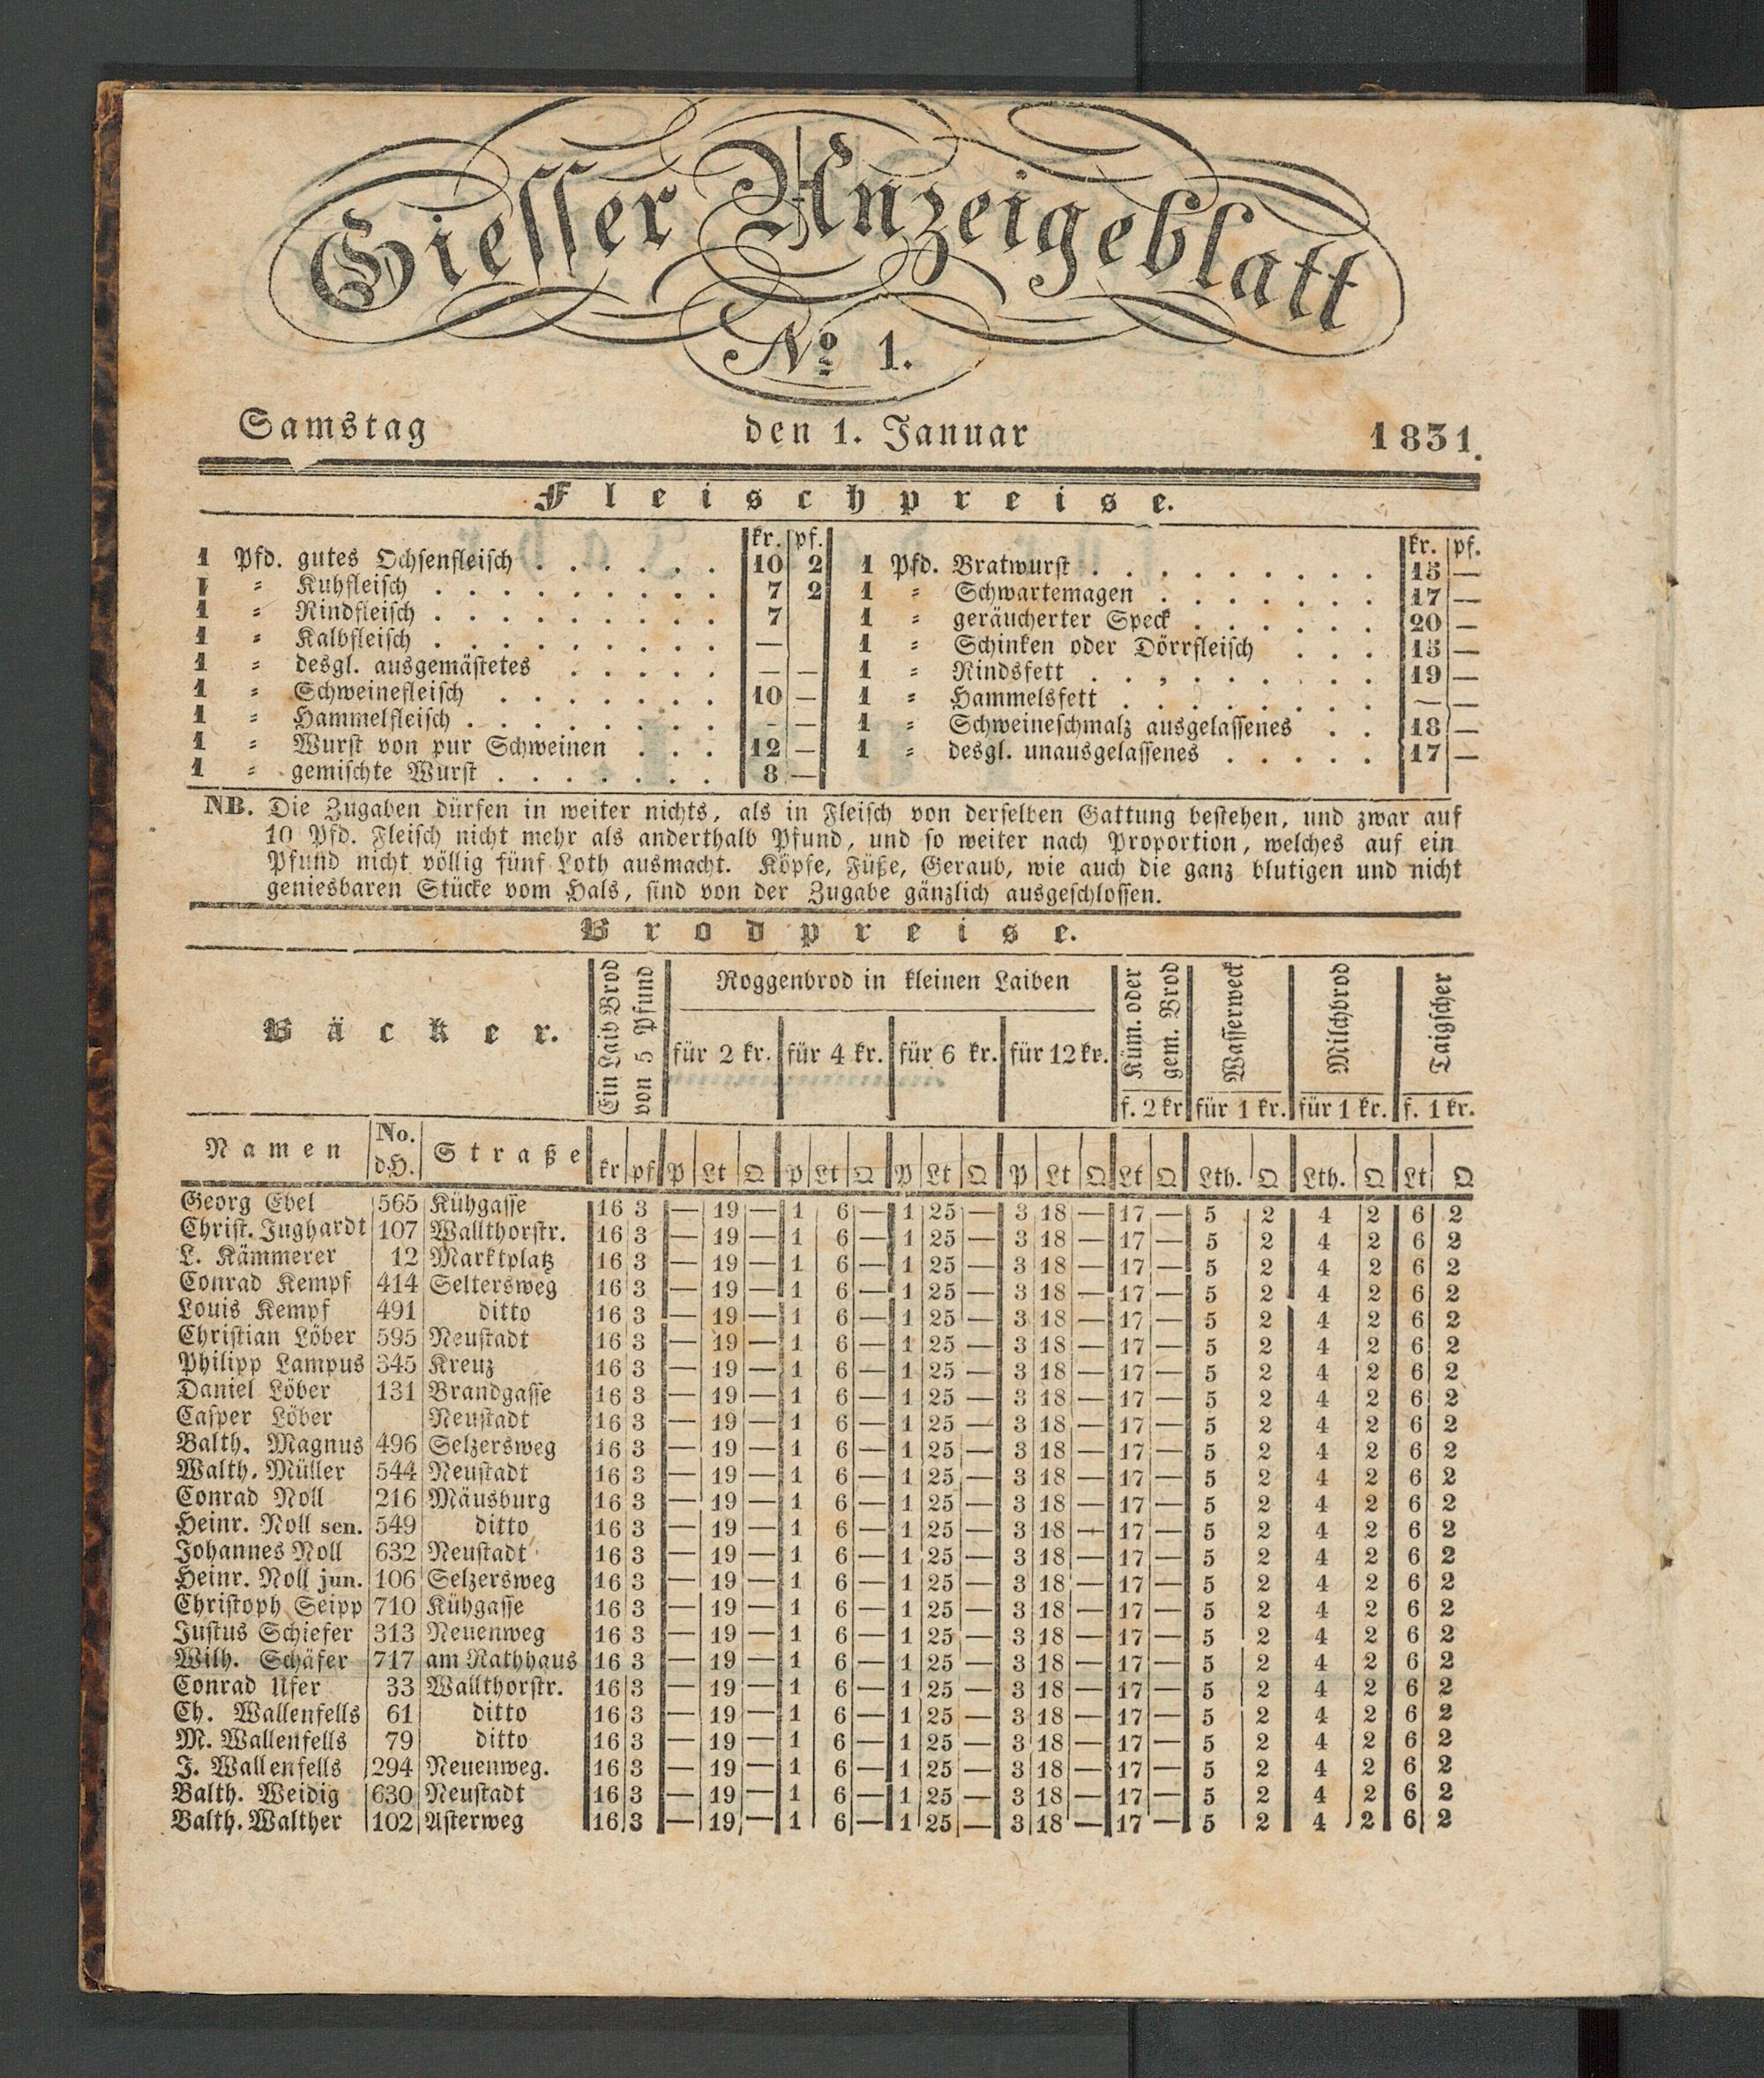 Giesser Anzeigeblatt
No 1.
Samstag den 1. Januar 1831.
Fleischpreise.
kr. pf. kr. pf.
1 Pfd. gutes Ochsenfleisch . . . . . . 10 2 1 Pfd. Bratwurst . . . . . . . . . 15 —
1 = Kuhfleisch . . . . . . . . . 7 2 1 = Schwartemagen . . . . . . . 17 —
1 = Rindfleisch . . . . . . . . . 7 1 = geräucherter Speck . . . . . . 20 —
1 = Kalbfleisch . . . . . . . . . — 1 = Schinken oder Dörrfleisch . . . 15 —
1 = desgl. ausgemästetes . . . . . — — 1 = Rindsfett . . . . . . . . . 19 —
1 = Schweinefleisch . . . . . . . 10 — 1 = Hammelsfett . . . . . . . . — —
1 = Hammelfleisch . . . . . . . . - — 1 = Schweineschmalz ausgelassenes . . 18 —
1 = Wurst von pur Schweinen . . . 12 — 1 = desgl. unausgelassenes . . . . . 17 —
1 = gemischte Wurst . . . . . . . 8 —
NB. Die Zugaben dürfen in weiter nichts, als in Fleisch von derselben Gattung bestehen, und zwar auf
10 Pfd. Fleisch nicht mehr als anderthalb Pfund, und so weiter nach Proportion, welches auf ein
Pfund nicht völlig fünf Loth ausmacht. Köpfe, Füße, Geraub, wie auch die ganz blutigen und nicht
geniesbaren Stücke vom Hals, sind von der Zugabe gänzlich ausgeschlossen.
Brodpreise.
Bäcker.
Ein Laib Brod
von 5 Pfund
Roggenbrod in kleinen Laiben
für 2 kr. für 4 kr. für 6 kr. für 12 kr.
Küm. oder
gem. Brod
f. 2 kr
Wasserweck
für 1 kr.
Milchbrod
für 1 kr.
Taigscher
f. 1 kr.
Namen No. d.H. Straße kr pf P Lt Q P Lt Q P Lt Q P Lt Q Lt Q Lth. Q Lth. Q Lt Q
Georg Ebel 565 Kühgasse 16 3 — 19 — 1 6 — 1 25 — 3 18 — 17 — 5 2 4 2 6 2
Christ. Jughardt 107 Wallthorstr. 16 3 — 19 — 1 6 — 1 25 — 3 18 — 17 — 5 2 4 2 6 2
L. Kämmerer 12 Marktplatz 16 3 — 19 — 1 6 — 1 25 — 3 18 — 17 — 5 2 4 2 6 2
Conrad Kempf 414 Seltersweg 16 3 — 19 — 1 6 — 1 25 — 3 18 — 17 — 5 2 4 2 6 2
Louis Kempf 491 ditto 16 3 — 19 — 1 6 — 1 25 — 3 18 — 17 — 5 2 4 2 6 2
Christian Löber 595 Neustadt 16 3 — 19 — 1 6 — 1 25 — 3 18 — 17 — 5 2 4 2 6 2
Philipp Lampus 345 Kreuz 16 3 — 19 — 1 6 — 1 25 — 3 18 — 17 — 5 2 4 2 6 2
Daniel Löber 131 Brandgasse 16 3 — 19 — 1 6 — 1 25 — 3 18 — 17 — 5 2 4 2 6 2
Casper Löber Neustadt 16 3 — 19 — 1 6 — 1 25 — 3 18 — 17 — 5 2 4 2 6 2
Balth. Magnus 496 Selzersweg 16 3 — 19 — 1 6 — 1 25 — 3 18 — 17 — 5 2 4 2 6 2
Walth. Müller 544 Neustadt 16 3 — 19 — 1 6 — 1 25 — 3 18 — 17 — 5 2 4 2 6 2
Conrad Noll 216 Mäusburg 16 3 — 19 — 1 6 — 1 25 — 3 18 — 17 — 5 2 4 2 6 2
Heinr. Noll sen. 549 ditto 16 3 — 19 — 1 6 — 1 25 — 3 18 — 17 — 5 2 4 2 6 2
Johannes Noll 632 Neustadt 16 3 — 19 — 1 6 — 1 25 — 3 18 — 17 — 5 2 4 2 6 2
Heinr. Noll jun. 106 Selzersweg 16 3 — 19 — 1 6 — 1 25 — 3 18 — 17 — 5 2 4 2 6 2
Christoph Seipp 710 Kühgasse 16 3 — 19 — 1 6 — 1 25 — 3 18 — 17 — 5 2 4 2 6 2
Justus Schiefer 313 Neuenweg 16 3 — 19 — 1 6 — 1 25 — 3 18 — 17 — 5 2 4 2 6 2
Wilh. Schäfer 717 am Rathhaus 16 3 — 19 — 1 6 — 1 25 — 3 18 — 17 — 5 2 4 2 6 2
Conrad Ufer 33 Wallthorstr. 16 3 — 19 — 1 6 — 1 25 — 3 18 — 17 — 5 2 4 2 6 2
Ch. Wallenfells 61 ditto 16 3 — 19 — 1 6 — 1 25 — 3 18 — 17 — 5 2 4 2 6 2
M. Wallenfells 79 ditto 16 3 — 19 — 1 6 — 1 25 — 3 18 — 17 — 5 2 4 2 6 2
J. Wallenfells 294 Neuenweg. 16 3 — 19 — 1 6 — 1 25 — 3 18 — 17 — 5 2 4 2 6 2
Balth. Weidig 630 Neustadt 16 3 — 19 — 1 6 — 1 25 — 3 18 — 17 — 5 2 4 2 6 2
Balth. Walther 102 Asterweg 16 3 — 19 — 1 6 — 1 25 — 3 18 — 17 — 5 2 4 2 6 2